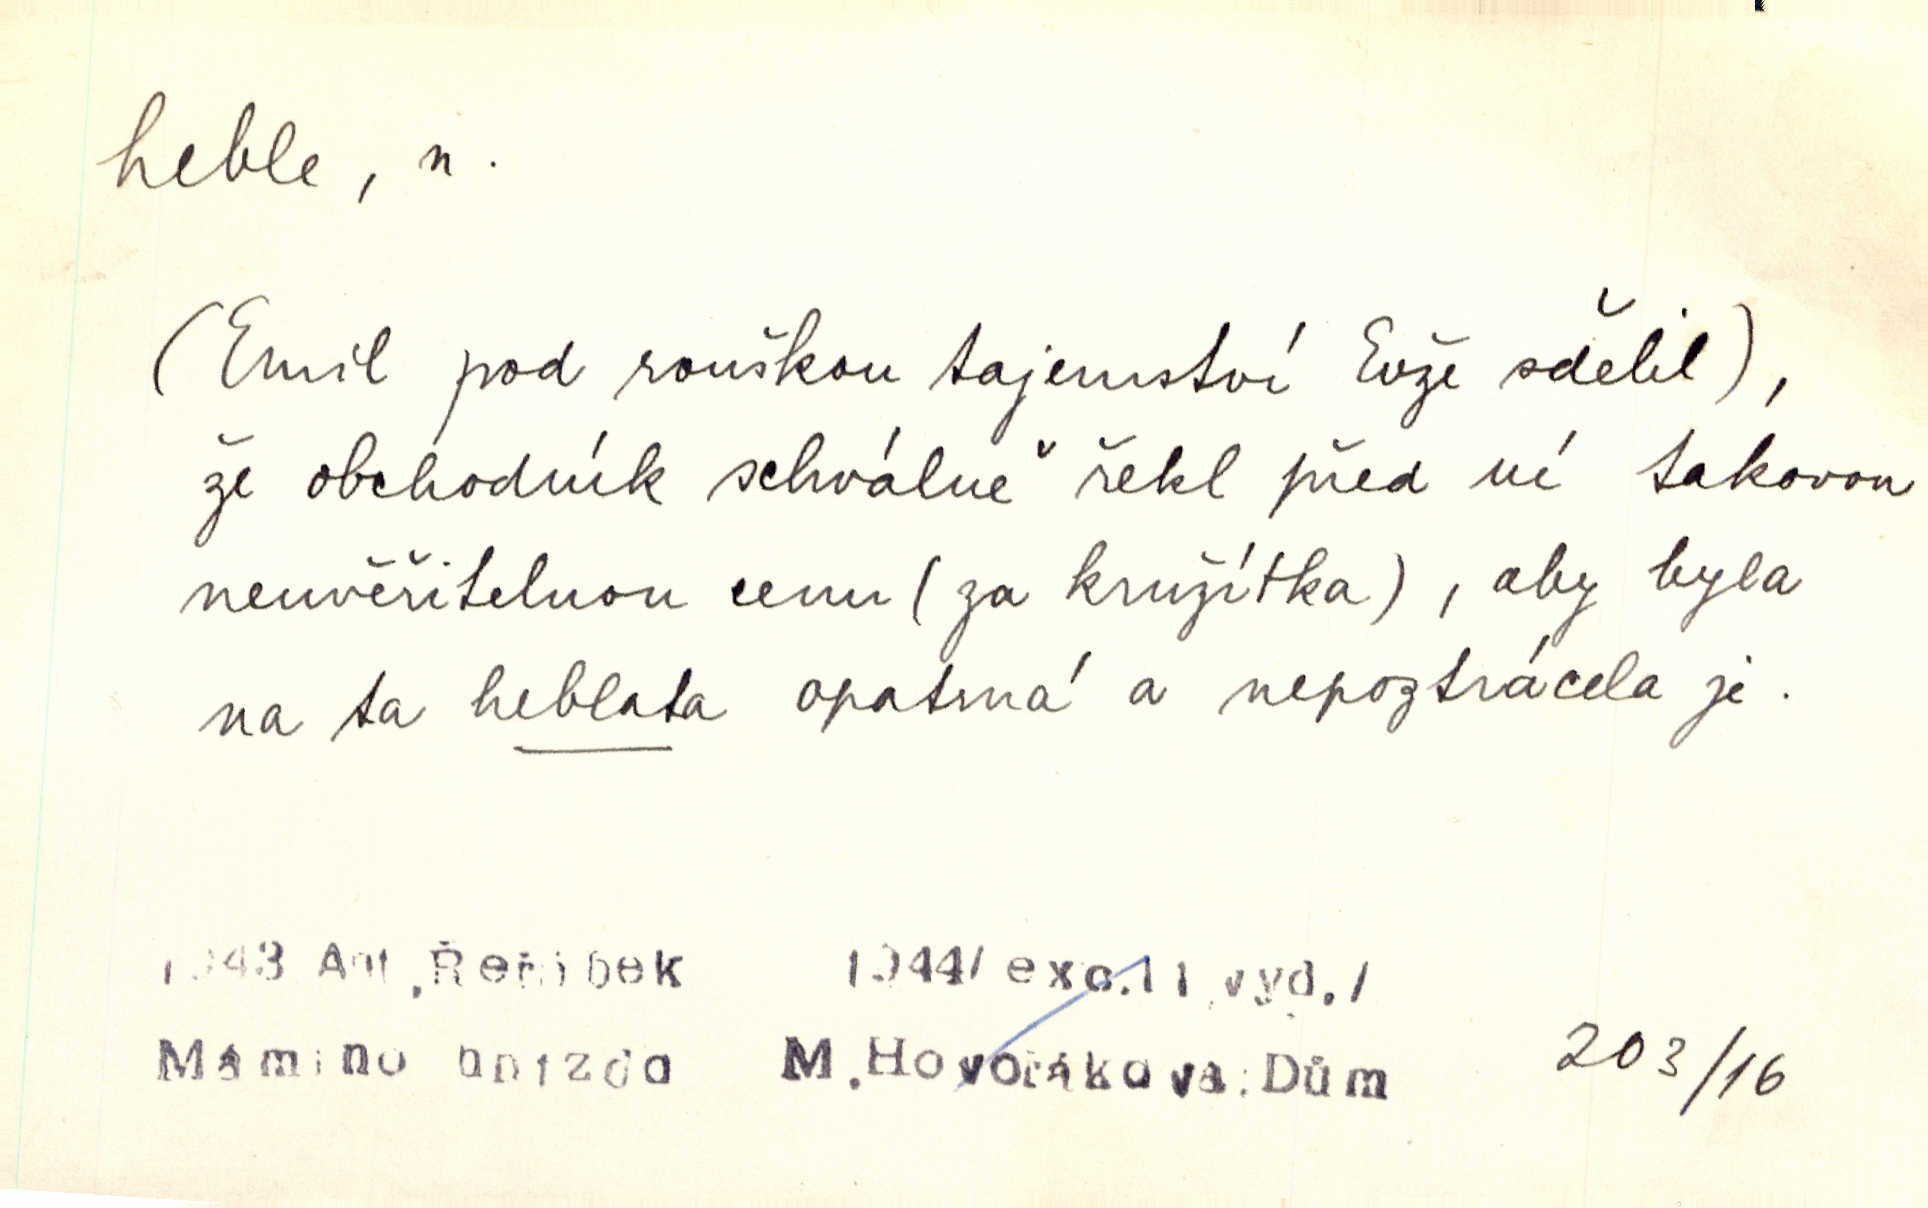 heble, n.
(Emil pod rouškou tajemství Evže sdělil),
že obchodník schválně řekl před ní takovou
neuvěřitelnou cenu (za kružítka), aby byla
na ta heblata opatrná a nepoztrácela je.
1943 Ant. Řeřábek 1944/ exc. II vyd./
Mámino hnízdo M. Hovořákova: Dům
203/16